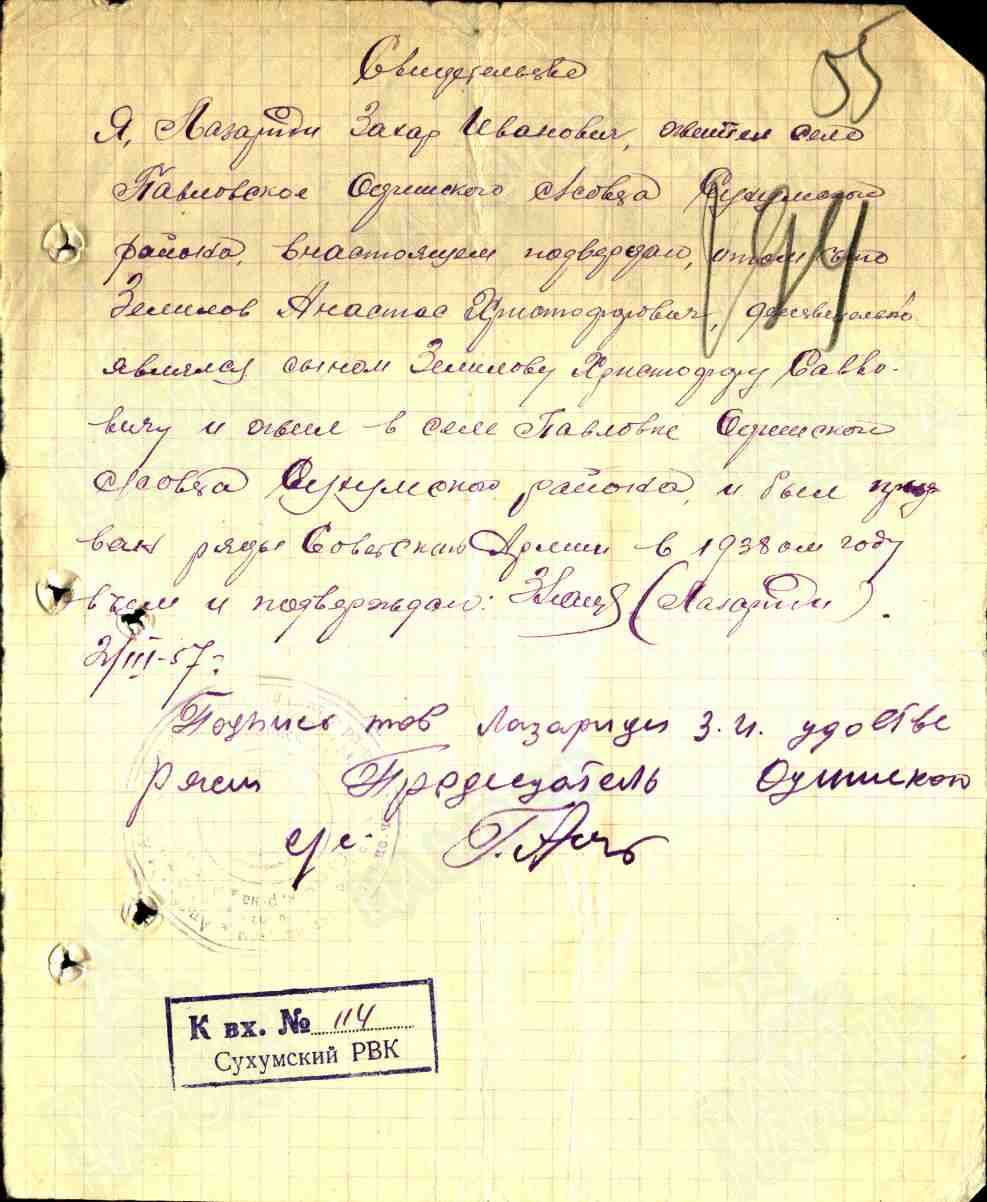 Свидетельство
55
Я, Лазариди Захар Иванович, житель село
Павловское Одишского с/совета Сухумский
района, внастоящем подвердаю, втом что
Зелилов Анастас Христофорович, действительно
являлся сыном Зелилову Христофору Савво-
вичу и жил в селе Павловке Одишского
с/совета Сухумского района, и был приз
ван ряды Советский Армии в 1938ом году
вчем и подтверждаю: (Лазариди).
2/III-57г.
Подпись тов Лазариди З.И. удостве
ряет Председатель Одишского
с/с.
К вх. № 114
Сухумский РВК